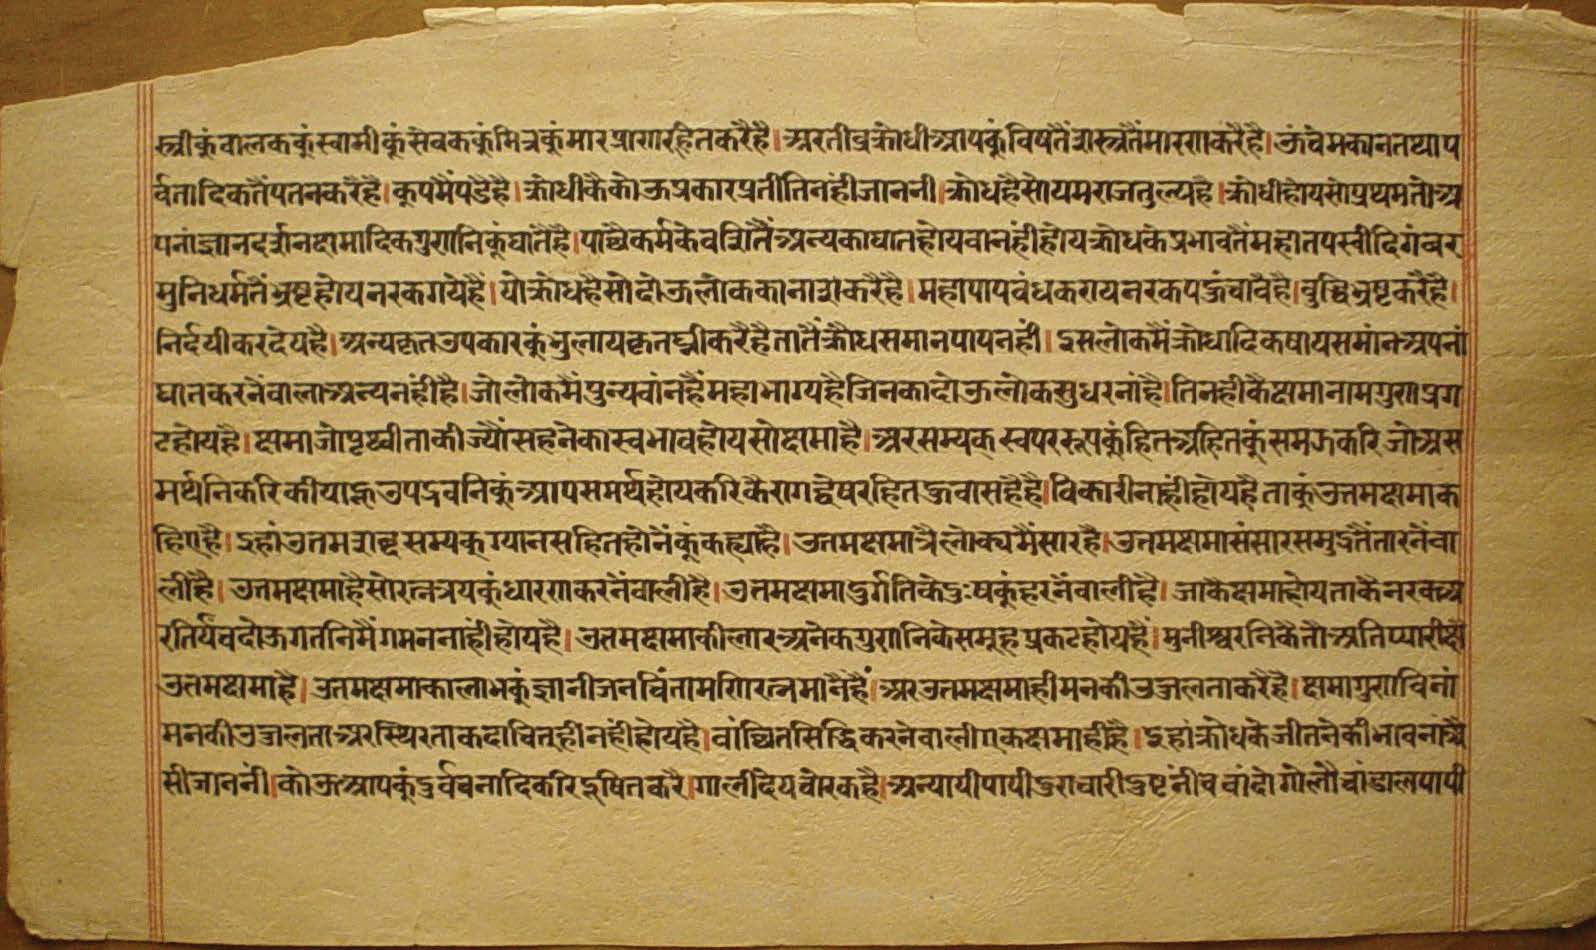 स्त्रीकुंवालककुंस्वामीकुंसेवककुंमित्रकुंमारप्राणरहितकरैहै। अरतीव्रक्रोधीआपकुंविषतैंशस्त्रतैंमारणकरैहै। ऊंचेमकानतथाप
र्वतादिकतैंपतनकरैहै। कुपमैंपडैहै। क्रोधीकैकोऊप्रकारप्रतीतिनहीजाननी। क्रोधहैसोयमराजतुल्यहै। क्रोधीहोयसोप्रथमतोअ
पनांज्ञानदर्शनक्षमादिकगुणनिकुंघातैहै। पाछैकर्मकेवशितैंअन्यकाघातहोयवानहीहोयक्रोधकेप्रभावतैंमहातपस्वीदिगंबर
मुनिधर्मतैंभ्रष्टहोयनरकगयेहैं। योक्रोधहैसोदोऊलोककानाशकरैहै। महापापबंधकरायनरकपऊंचावैहै। बुद्धिभ्रष्टकरैहै।
निर्दयीकरदेयहै। अन्यकृतउपकारकुंभुलायकृतघ्नीकरैहैतातैंक्रौधसमानपापनहीं। इसलोकमैंक्रोधादिकषायसमांनअपनां
घातकरनेंवालाअन्यनंहीहै। जोलोकमैंपुन्यवांनहैंमहाभाग्यहैजिनकादोऊलोकसुधरनांहै। तिनहीकैक्षमानामगुणप्रग
टहोयहै। क्षमाजोपृथ्वीताकीज्यौंसहनेकास्वभावहोयसोक्षमाहै। अरसम्यकस्वपररूपकुंहितअहितकुंसमऊकरिजोअस
मर्थनिकरिकीयाहूउपद्रवनिकुंआपसमर्थहोयकरिकैरागद्वेषरहितऊवासहैहै। विकारीनाहीहोयहैताकुंउत्तमक्षमाक
हिएहै। इहांउत्तमशब्दसम्यकग्यानसहितहोनेंकुंकह्याहै। उत्तमक्षमात्रैलोक्यमैंसारहै। उत्तमक्षमासंसारसमुद्रतैंतारनेंवा
लीहै। उत्तमक्षमाहैसोरत्नत्रयकुंधारणकरनेंवालीहै। उत्तमक्षमादुर्गतिकेदुःषकुंहरनेंवालीहै। जाकैक्षमाहोयताकैनरकअ
रतिर्यंचदोऊगतनिमैंगमननाहीहोयहै। उत्तमक्षमाकीलारअनेकगुणनिकेसमूहप्रकटहोयहैं। मुनीश्वरनिकैतोअतिप्यारी
उत्तमक्षमाहै। उत्तमक्षमाकालाभकुंज्ञानीजनचिंतामणिरत्नमानैहैं। अरउत्तमक्षमाहीमनकीउज्जलताकरैहै। क्षमागुणविनां
मनकीउज्जलताअरस्थिरताकदाचितहीनहीहोयहै। वांछितसिद्धिकरनेवालीएकक्षमाहीहै। इहांक्रोधकेजीतनेकीभावनाअै
सीजाननी। कोऊआपकुंदुर्वचनादिकरिदूषितकरै। गालीदेयचोरकहै। अन्यायीपापीदुराचारीदुष्टनीच पापी